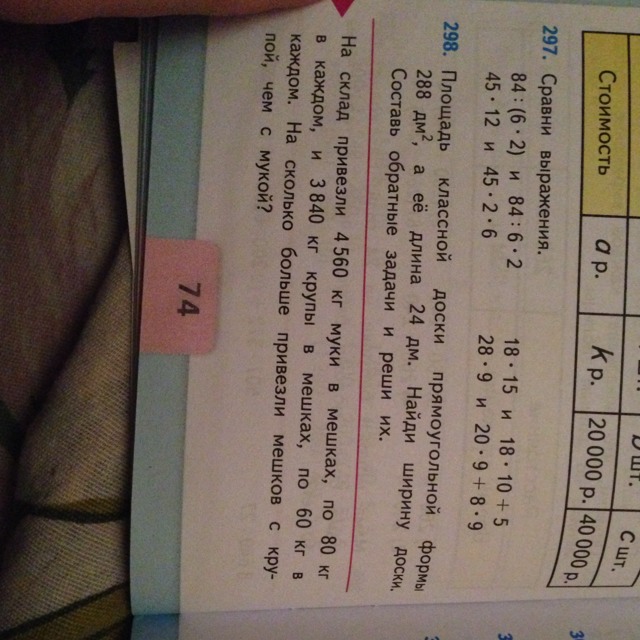 с шт.
Стоимость а р. k р. 20 000 р. 40 000 р.
297. Сравни выражения.
84 : (6 · 2) и 84 : 6 · 2 18 · 15 и 18 · 10 + 5
45 · 12 и 45 · 2 · 6 28 · 9 и 20 · 9 + 8 · 9
298. Площадь классной доски прямоугольной формы
288 дм², а её длина 24 дм. Найди ширину доски.
Составь обратные задачи и реши их.
На склад привезли 4 560 кг муки в мешках, по 80 кг
в каждом, и 3 840 кг крупы в мешках, по 60 кг в
каждом. На сколько больше привезли мешков с кру-
пой, чем с мукой?
74